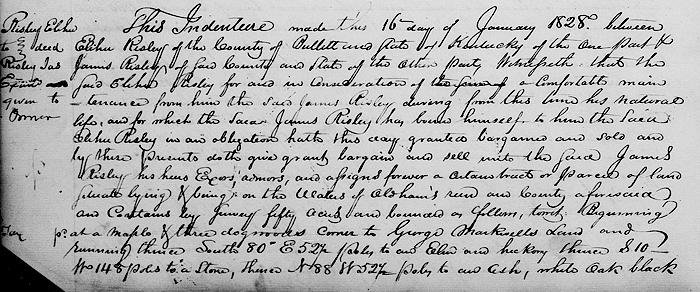 Risley Elihu This Indenture made this 16th day of January 1828. between
to deed Elihu Risley of the County of Bullett and State of Kentucky of the One part &
Risley Jas James Risley of said County and State of the Other party Witnesseth that the
said Elihu Risley for and in Consideration of the sum of a comfortable main
given to -tenance from him the said James Risley during from this time his natural
Owner life, and for which the said James Risley has bound himself to him the said
Elihu Risley in an obligation hath this day granted bargained and sold and
by these presents do th give grant bargain and sell unto the said James
Risley his heirs Exors, admors, and assigns forever a certain tract or parcel of land
situate lying & being on the Waters of Oldham's run and County aforesaid
and Contains by Survey fifty Acres and bounded as follows, towit Beginning
at a maple & three dogwoods corner to George Markwells Land and
running thence South 80° E 52 poles to an Elm and hickory thence S 10
W 148 poles to a Stone, thence N 88 W 52 poles to an Ash, white Oak black